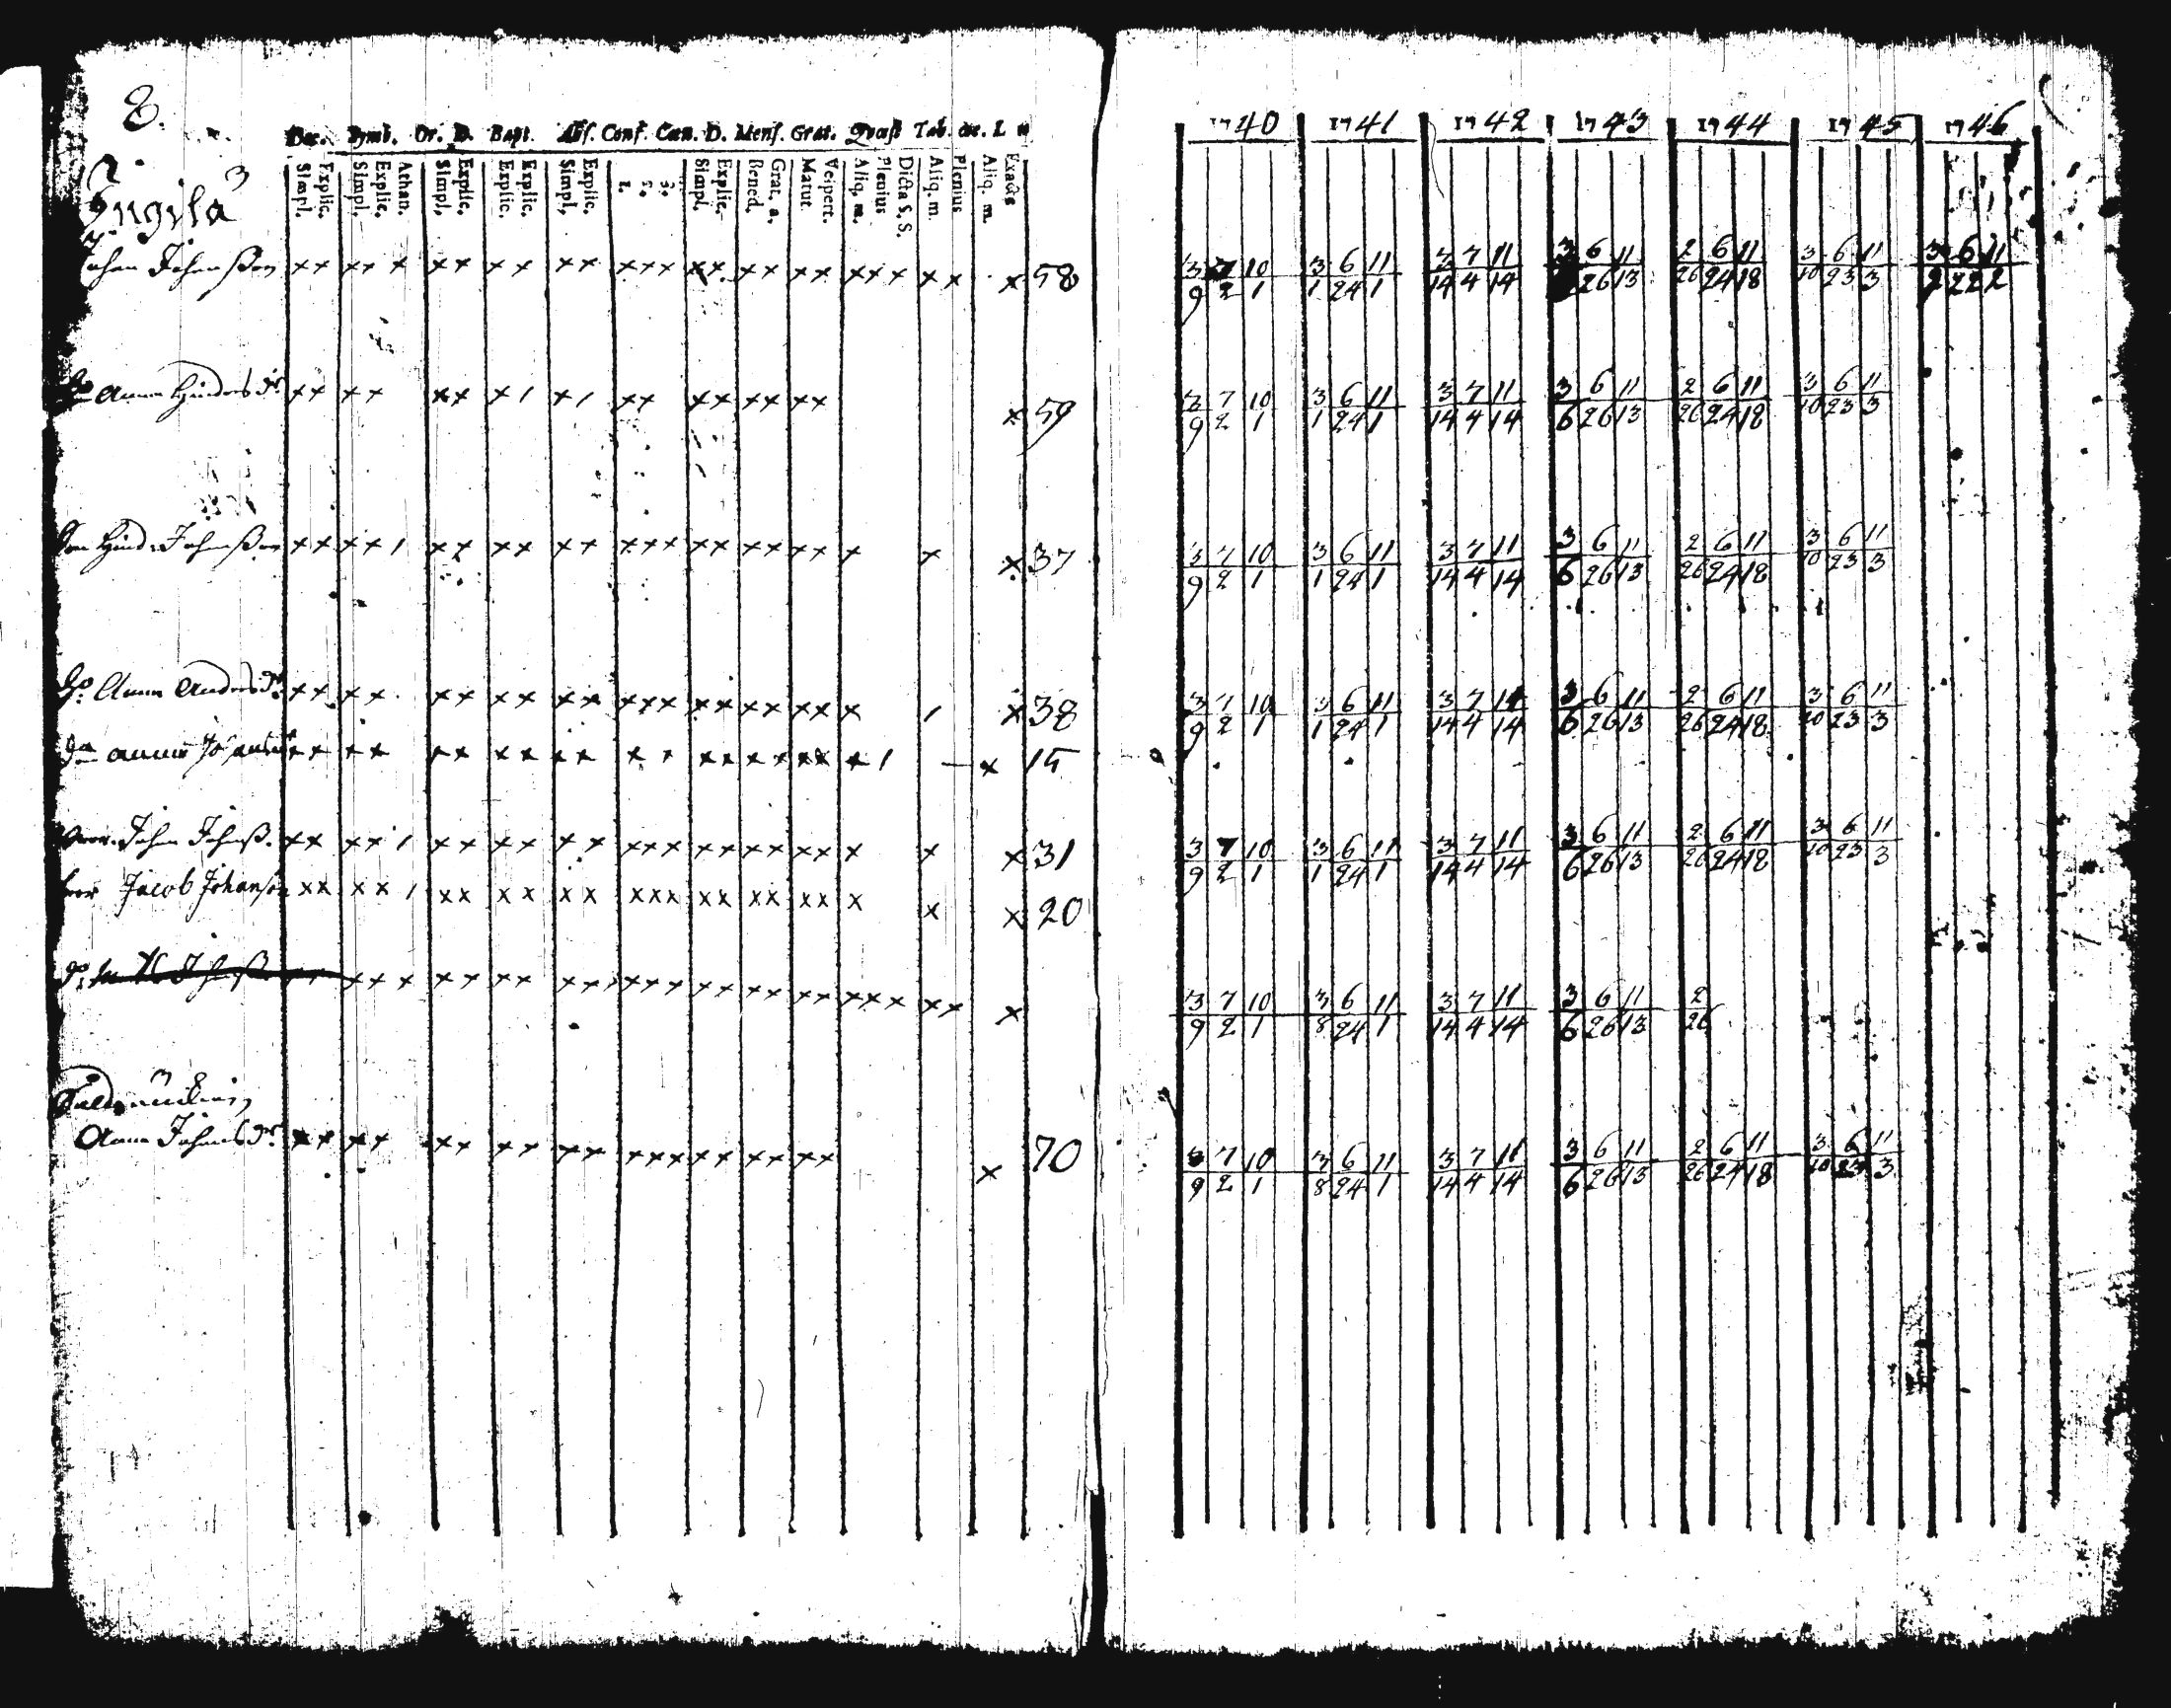 8.
Dec. Symb. Or. D. Bapt. Abs. Conf. Cœn. D. Mens. Grat. Quæst Tab. œc. L
Simpl. Explic. Simpl. Explic. Athan. Simpl. Explic. Explic. Explic. Simpl. Explic. 1. 2. 3. Simpl. Explic. Bened. Grat. a. Matut. Vespert. Aliq. m. Plenius Dicta S. S. Aliq. m. Plenius Aliq. m. Exacte
1740 1741 1742 1743 1744 1745 1746
Johan Johansson x x x x x x x x x x x x x x x x x x x x x x x x x x 58
3 7 10 3 6 11 3 7 11 3 6 11 2 6 11 3 6 11 3 6 11
9 2 1 1 24 1 14 4 14 26 13 26 24 18 10 23 3 2 22 2
Anna Hindersdr x x x x x x x / x / x x x x x x x x x 59
3 7 10 3 6 11 3 7 11 3 6 11 2 6 11 3 6 11
9 2 1 1 24 1 14 4 14 6 26 13 26 24 18 10 23 3
Hind. Johansson x x x x / x x x x x x x x x x x x x x x x x x 37
3 7 10 3 6 11 3 7 11 3 6 11 2 6 11 3 6 11
9 2 1 1 24 1 14 4 14 6 26 13 26 24 18 10 23 3
Anna Andersdr x x x x x x x x x x x x x x x x x x x x / x 38
3 7 10 3 6 11 3 7 11 3 6 11 2 6 11 3 6 11
9 2 1 1 24 1 14 4 14 6 26 13 26 24 18 10 23 3
anna x x x x x x x x x x x x x x x x x x / — x 15
Johan Johanss. x x x x / x x x x x x x x x x x x x x x x x x 31
3 7 10 3 6 11 3 7 11 3 6 11 2 6 11 3 6 11
9 2 1 1 24 1 14 4 14 6 26 13 26 24 18 10 23 3
Jacob Johanson x x x x / x x x x x x x x x x x x x x x x x x 20
x x x x x x x x x x x x x x x x x x x x x x x x
3 7 10 3 6 11 3 7 11 3 6 11 2
9 2 1 8 24 1 14 4 14 6 26 13 26
Anna Johansdr x x x x x x x x x x x x x x x x x x x 70
3 7 10 3 6 11 3 7 11 3 6 11 2 6 11 3 6 11
9 2 1 8 24 1 14 4 14 6 26 13 26 24 18 10 23 3